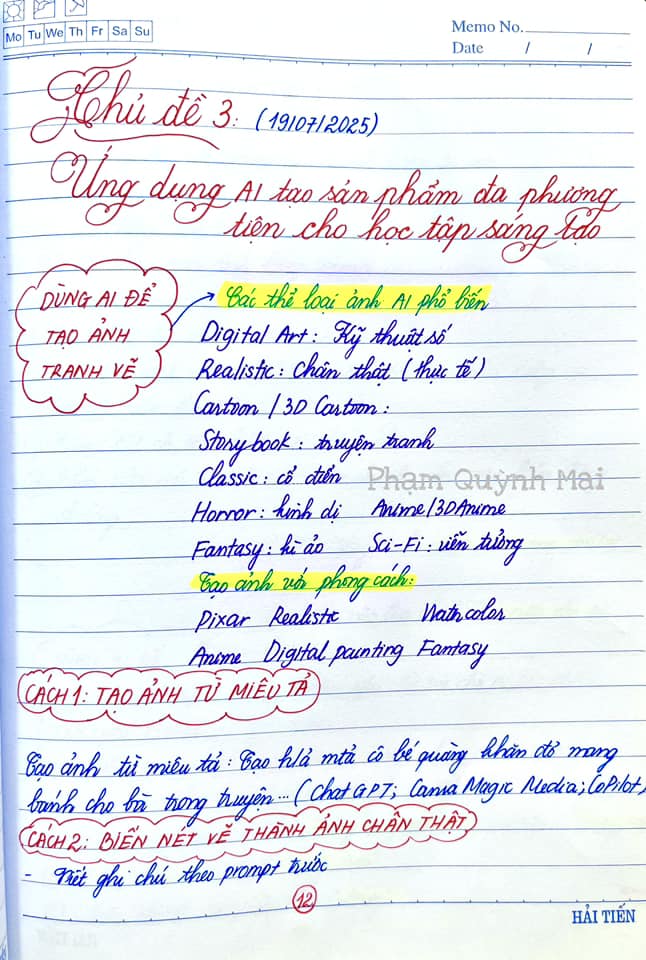 Mo Tu We Th Fr Sa Su
Memo No.
Date / /
Chủ đề 3: (19/07/2025)
Ứng dụng AI tạo sản phẩm đa phương
tiện cho học tập sáng tạo
DÙNG AI ĐỂ
TẠO ẢNH
TRANH VẼ
Các thể loại ảnh AI phổ biến
Digital Art: Kỹ thuật số
Realistic: chân thật (thực tế)
Cartoon / 3D Cartoon:
Storybook: truyện tranh
Classic: cổ điển
Phạm Quỳnh Mai
Horror: kinh dị Anime/3DAnime
Fantasy: kì ảo Sci-Fi: viễn tưởng
Tạo ảnh với phong cách:
Pixar Realistic Wathcolor
Anime Digital paunting Fantasy
CÁCH 1: TẠO ẢNH TỪ MIÊU TẢ
Tạo ảnh từ miêu tả: Tạo h/ả mtả cô bé quàng khăn đỏ mang
bánh cho bà trong truyện... (ChatGPT; Canva Magic Media; CoPilot,
CÁCH 2: BIẾN NÉT VẼ THÀNH ẢNH CHÂN THẬT
- Viết ghi chú theo prompt trước
12
HẢI TIẾN